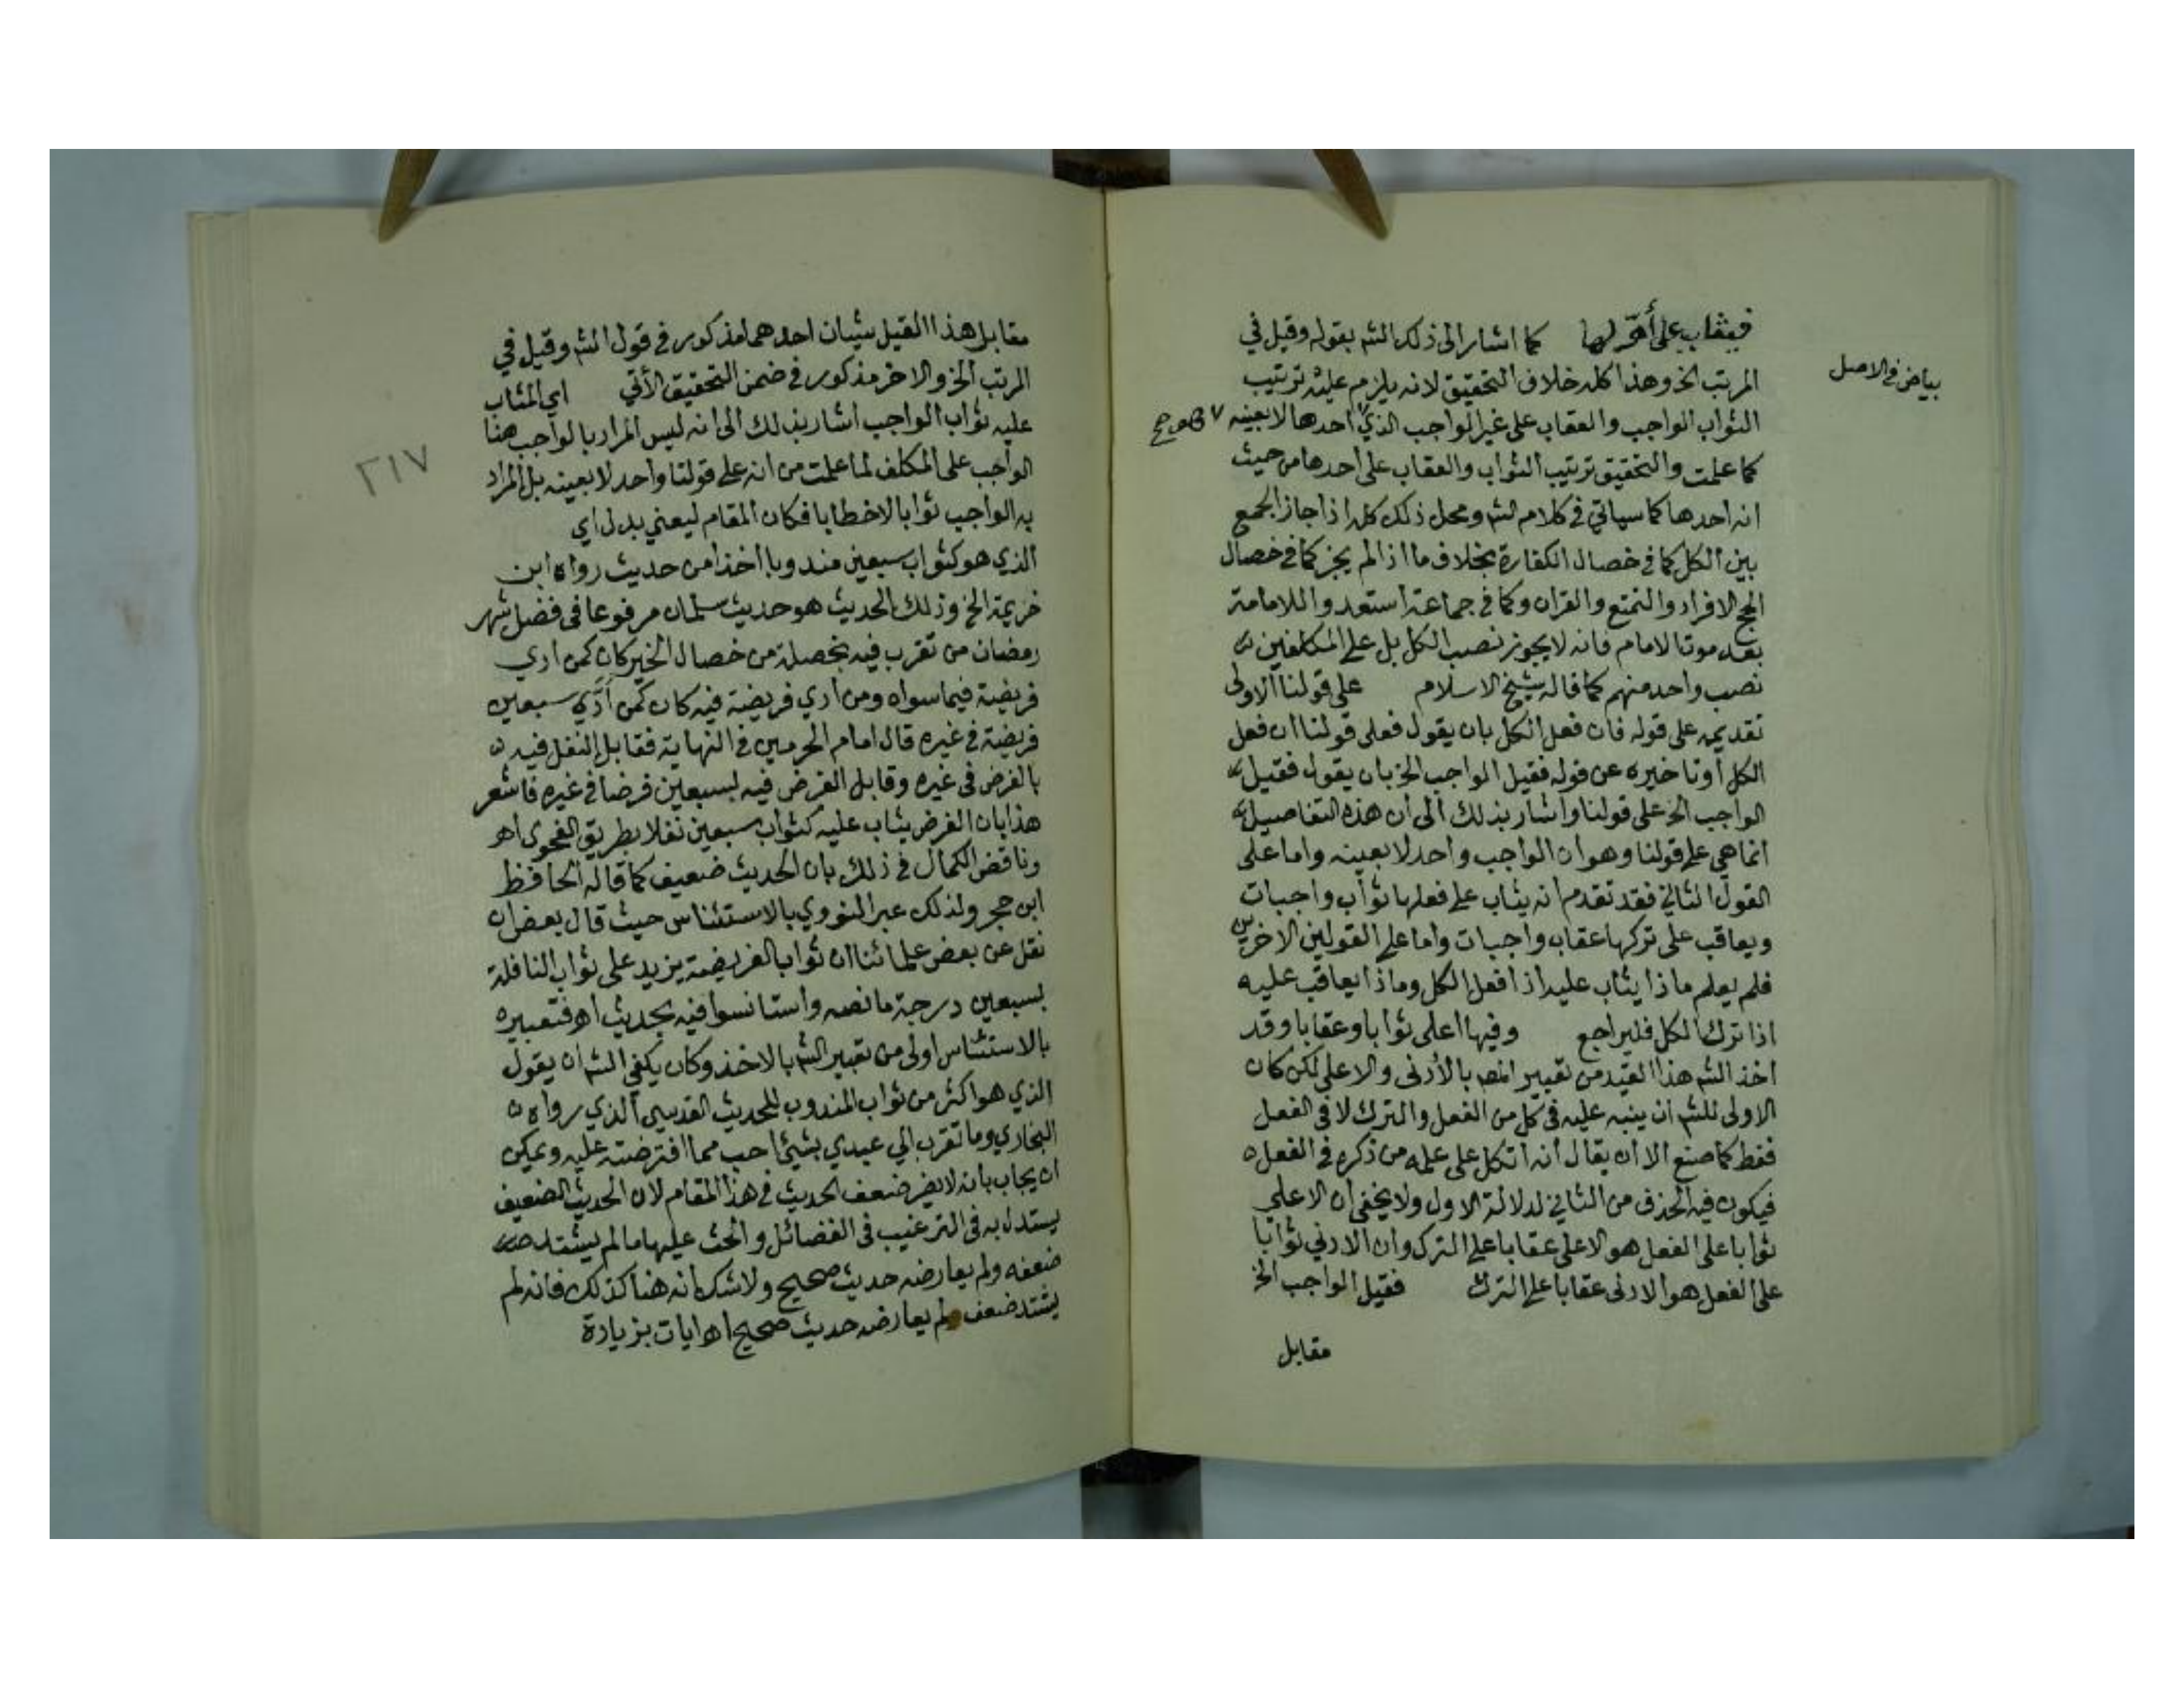 فيعاقب على أولها كما اشار الى ذلك الشم بقوله وقيل في
المرتب الخ وهذا كله خلاف التحقيق لانه يلزم عليه ترتيب
بياض في الاصل
الثواب الواجب والعقاب على غير الواجب الذي احدها لا بعينه
كما علمت والتحقيق ترتيب الثواب والعقاب على احدها من حيث
انه احدها كما سياتي في كلام الشم ومحل ذلك كله اذا جاز الجمع
بين الكل كما في خصال الكفارة بخلاف ما اذا لم يجز كما في خصال
الحج الافراد والتمتع والقران وكما في جماعة استعدوا للامامة
بعد موت الامام فانه لا يجوز نصب الكل بل على المكلفين
نصب واحد منهم كما قاله شيخ الاسلام على قولنا الاولى
تقديمه على قوله فان فعل الكل بان يقول فعلى قولنا ان فعل
الكل او تاخيره عن قوله فقيل الواجب الخ بان يقول فقيل
الواجب الخ على قولنا واشار بذلك الى ان هذه التفاصيل
انما هي على قولنا وهو ان الواجب واحد لا بعينه واما على
القول الثاني فقد تقدم انه يثاب على فعلها ثواب واجبات
ويعاقب على تركها عقاب واجبات واما على القولين الاخرين
فلم يعلم ماذا يثاب عليه اذا فعل الكل وماذا يعاقب عليه
اذا ترك الكل فليراجع وفيها اعلى ثوابا وعقابا وقد
اخذ الشم هذا القيد من تعبير المص بالأدنى والاعلى لكن كان
الاولى للشم ان ينبه عليه في كل من الفعل والترك لا في الفعل
فقط كما صنع الا ان يقال انه اتكل على علمه من ذكره في الفعل
فيكون فيه الحذف من الثاني لدلالة الاول ولا يخفى ان الاعلى
ثوابا على الفعل هو الاعلى عقابا على الترك وان الادني ثوابا
على الفعل هو الادنى عقابا على الترك فقيل الواجب الخ
مقابل
مقابل هذا القيل شيئان احدهما مذكور في قول الشم وقيل في
المرتب الخ والاخر مذكور في ضمن التحقيق الأتي اي المثاب
عليه ثواب الواجب اشار بذلك الى انه ليس المراد بالواجب هنا
٢١٧
الواجب على المكلف لما علمت من انه على قولنا واحد لا بعينه بل المراد
به الواجب ثوابا لا خطابا فكان المقام ليعني بدل اي
الذي هو كثواب سبعين مندوبا اخذا من حديث رواه ابن
خزيمة الخ وذلك الحديث هو حديث سلمان مرفوعا في فضل شهر
رمضان من تقرب فيه بخصلة من خصال الخير كان كمن ادي
فريضة فيما سواه ومن ادي فريضة فيه كان كمن أدّي سبعين
فريضة في غيره قال امام الحرمين في النهاية فقابل النفل فيه
بالفرض في غيره وقابل الفرض فيه بسبعين فرضا في غيره فاشعر
هذا بان الفرض يثاب عليه كثواب سبعين نفلا بطريق الفحوى اهـ
وناقض الكمال في ذلك بان الحديث ضعيف كما قاله الحافظ
ابن حجر ولذلك عبر النووي بالاستئناس حيث قال بعض ان
نقل عن بعض علمائنا ان ثواب الفريضة يزيد على ثواب النافلة
بسبعين درجة ما نصه واستانسوا فيه بحديث اهـ فتعبيره
بالاستئناس اولى من تعبير الشم بالاخذ وكان يكفي الشم ان يقول
الذي هو اكثر من ثواب المندوب للحديث القدسي الذي رواه
البخاري وما تقرب الي عبدي بشيئ احب مما افترضته عليه ويمكن
ان يجاب بانه لا يضر ضعف الحديث في هذا المقام لان الحديث الضعيف
يستدل به في الترغيب في الفضائل والحث عليها ما لم يشتد
ضعفه ولم يعارضه حديث صحيح ولا شك انه هنا كذلك فانه لم
يشتد ضعف ولم يعارضه حديث صحيح اهـ ايات بزيادة